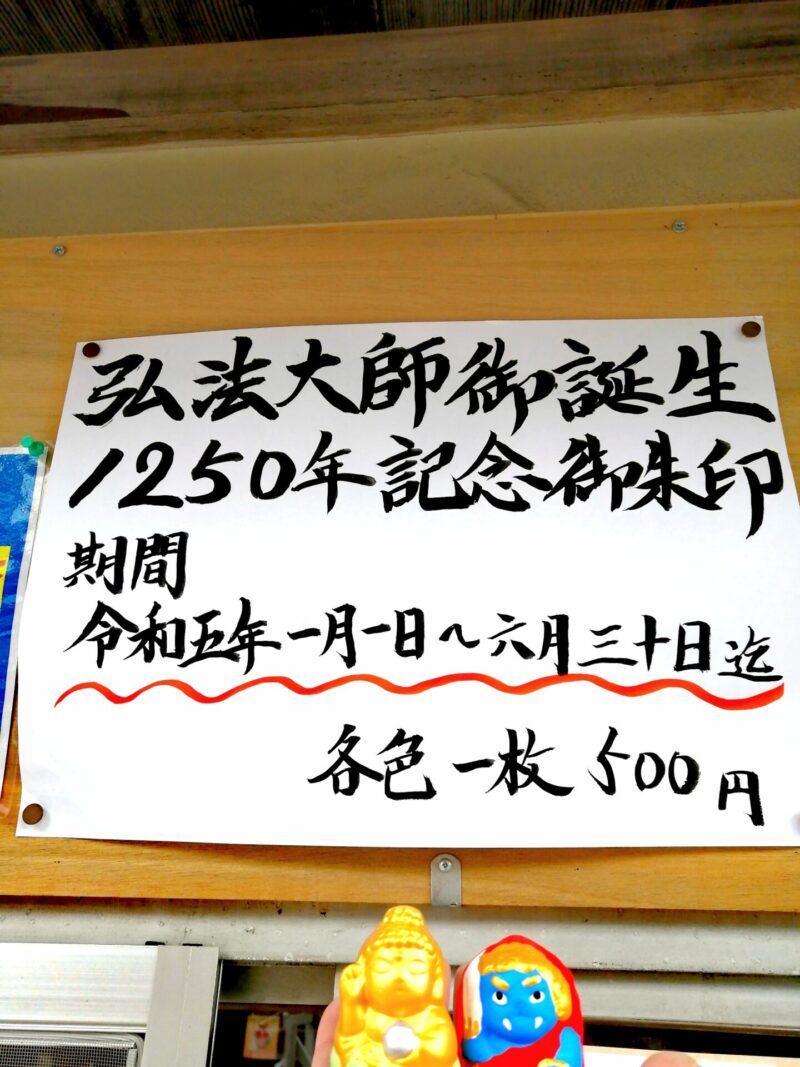 弘法大師御誕生
1250年記念御朱印
期間
令和五年一月一日～六月三十日迄
各色一枚500円